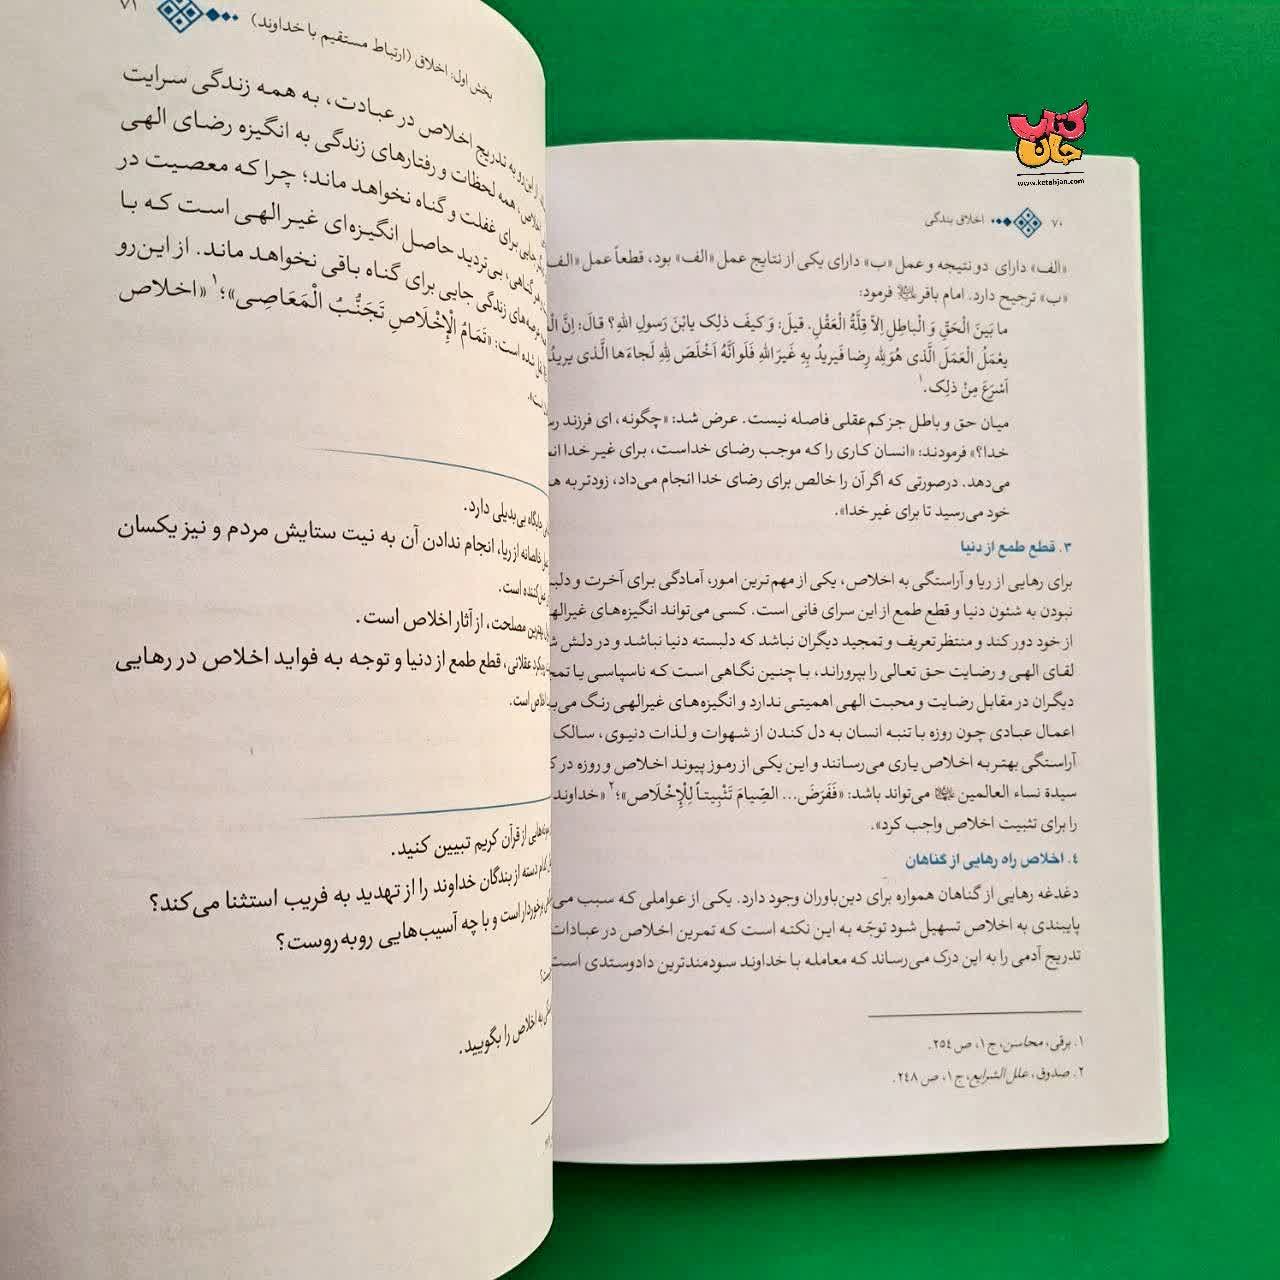 کتاب جان
www.ketabjan.com
۷۰ اخلاق بندگی
«الف» دارای دو نتیجه و عمل «ب» دارای یکی از نتایج عمل «الف» بود، قطعاً عمل «الف
«ب» ترجیح دارد. امام باقر علیه‌السلام فرمود:
ما بَینَ الْحَقِّ وَ الْباطِلِ اِلاّ قِلَّةُ الْعَقْلِ. قیلَ: وَ کَیفَ ذلِک یابْنَ رَسولِ اللهِ؟ قالَ: اِنَّ
یعْمَلُ الْعَمَلَ الَّذی هُوَ لِلهِ رِضا فَیریدُ بِهِ غَیرَ اللهِ فَلَو اَنَّهُ اَخْلَصَ لِلهِ لَجاءَها الَّذی یریدُ
اَسْرَعَ مِنْ ذلِک.۱
میان حق و باطل جز کم‌عقلی فاصله نیست. عرض شد: «چگونه، ای فرزند
خدا؟» فرمودند: «انسان کاری را که موجب رضای خداست، برای غیر خدا
می‌دهد. درصورتی که اگر آن را خالص برای رضای خدا انجام می‌داد، زودتر به
خود می‌رسید تا برای غیر خدا».
۳. قطع طمع از دنیا
برای رهایی از ریا و آراستگی به اخلاص، یکی از مهم‌ترین امور، آمادگی برای آخرت و
نبودن به شئون دنیا و قطع طمع از این سرای فانی است. کسی می‌تواند انگیزه‌های
از خود دور کند و منتظر تعریف و تمجید دیگران نباشد که دلبسته دنیا نباشد و در دلش
لقای الهی و رضایت حق تعالی را بپروراند، با چنین نگاهی است که ناسپاسی یا
دیگران در مقابل رضایت و محبت الهی اهمیتی ندارد و انگیزه‌های غیرالهی رنگ
اعمال عبادی چون روزه با تنبه انسان به دل کندن از شهوات و لذات دنیوی، سالک
آراستگی بهتر به اخلاص یاری می‌رسانند و این یکی از رموز پیوند اخلاص و روزه در
سیدة نساء العالمین می‌تواند باشد: «فَفَرَضَ... الصِّیامَ تَثْبِیتاً لِلْإِخْلَاص»؛۲ «خداوند
را برای تثبیت اخلاص واجب کرد».
۴. اخلاص راه رهایی از گناهان
دغدغه رهایی از گناهان همواره برای دین‌باوران وجود دارد. یکی از عواملی که سبب
پایبندی به اخلاص تسهیل شود توجّه به این نکته است که تمرین اخلاص در عبادات
تدریج آدمی را به این درک می‌رساند که معامله با خداوند سودمندترین دادوستدی است
۱. برقی، محاسن، ج۱، ص ۲۵۴.
۲. صدوق، علل الشرایع، ج۱، ص ۲۴۸.
بخش اول: اخلاق (ارتباط مستقیم با خداوند) ۷۱
از این‌رو به تدریج اخلاص در عبادت، به همه زندگی سرایت
اخلاص، همه لحظات و رفتارهای زندگی به انگیزه رضای الهی
جایی برای غفلت و گناه نخواهد ماند؛ چرا که معصیت در
هر گناهی، بی‌تردید حاصل انگیزه‌ای غیرالهی است که با
عرصه‌های زندگی جایی برای گناه باقی نخواهد ماند. از این‌رو
شده است: «تَمَامُ الْإِخْلَاصِ تَجَنُّبُ الْمَعَاصِی»؛۱ «اخلاص
جایگاه بی‌بدیلی دارد.
خالصانه از ریا، انجام ندادن آن به نیت ستایش مردم و نیز یکسان
است.
بهترین مصلحت، از آثار اخلاص است.
رویکرد عقلانی، قطع طمع از دنیا و توجه به فواید اخلاص در رهایی
اخلاص است.
از قرآن کریم تبیین کنید.
کدام دسته از بندگان خداوند را از تهدید به فریب استثنا می‌کند؟
برخوردار است و با چه آسیب‌هایی روبه‌روست؟
به اخلاص را بگویید.